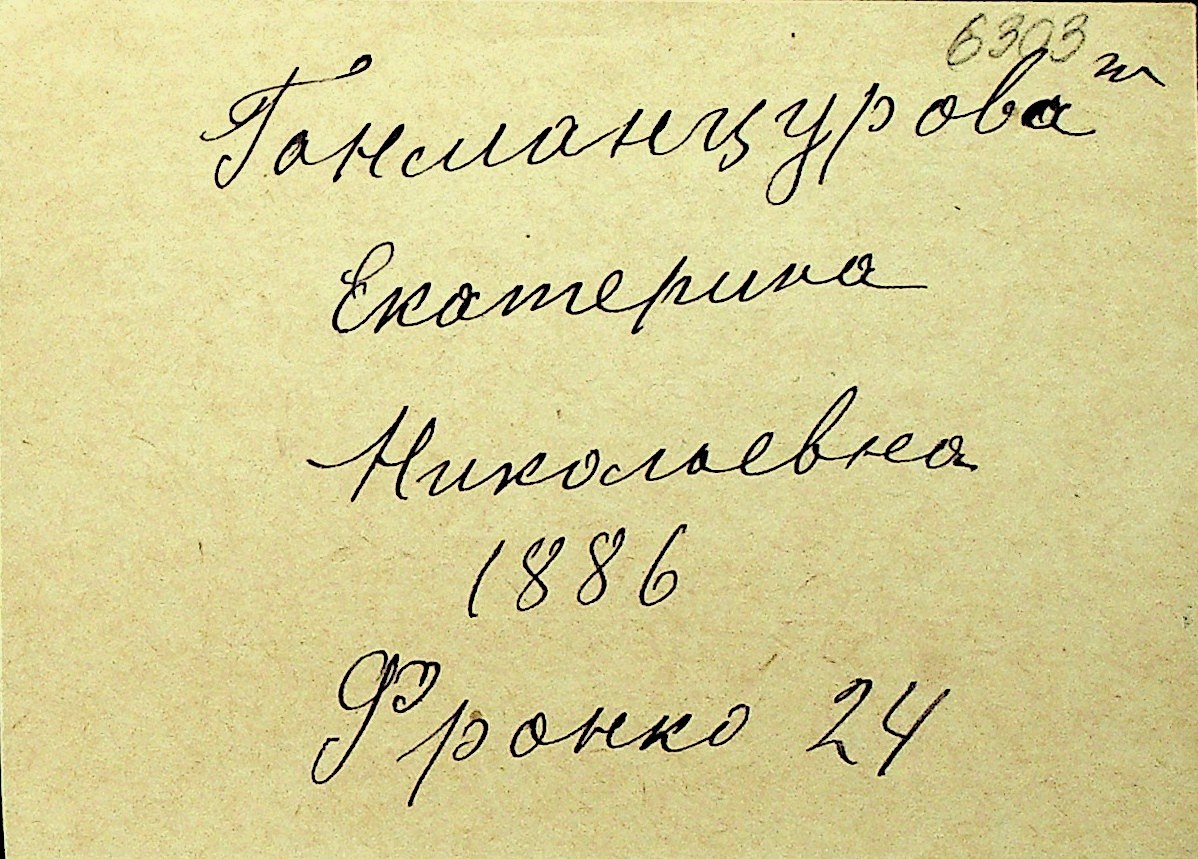 6303
Ганманцурова т
Екатерина
Николаевна
1886
Франко 24